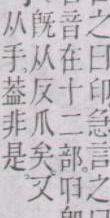 之曰印急言之
音在十二部。㕥
旣从反爪矣。又
从手葢非是。